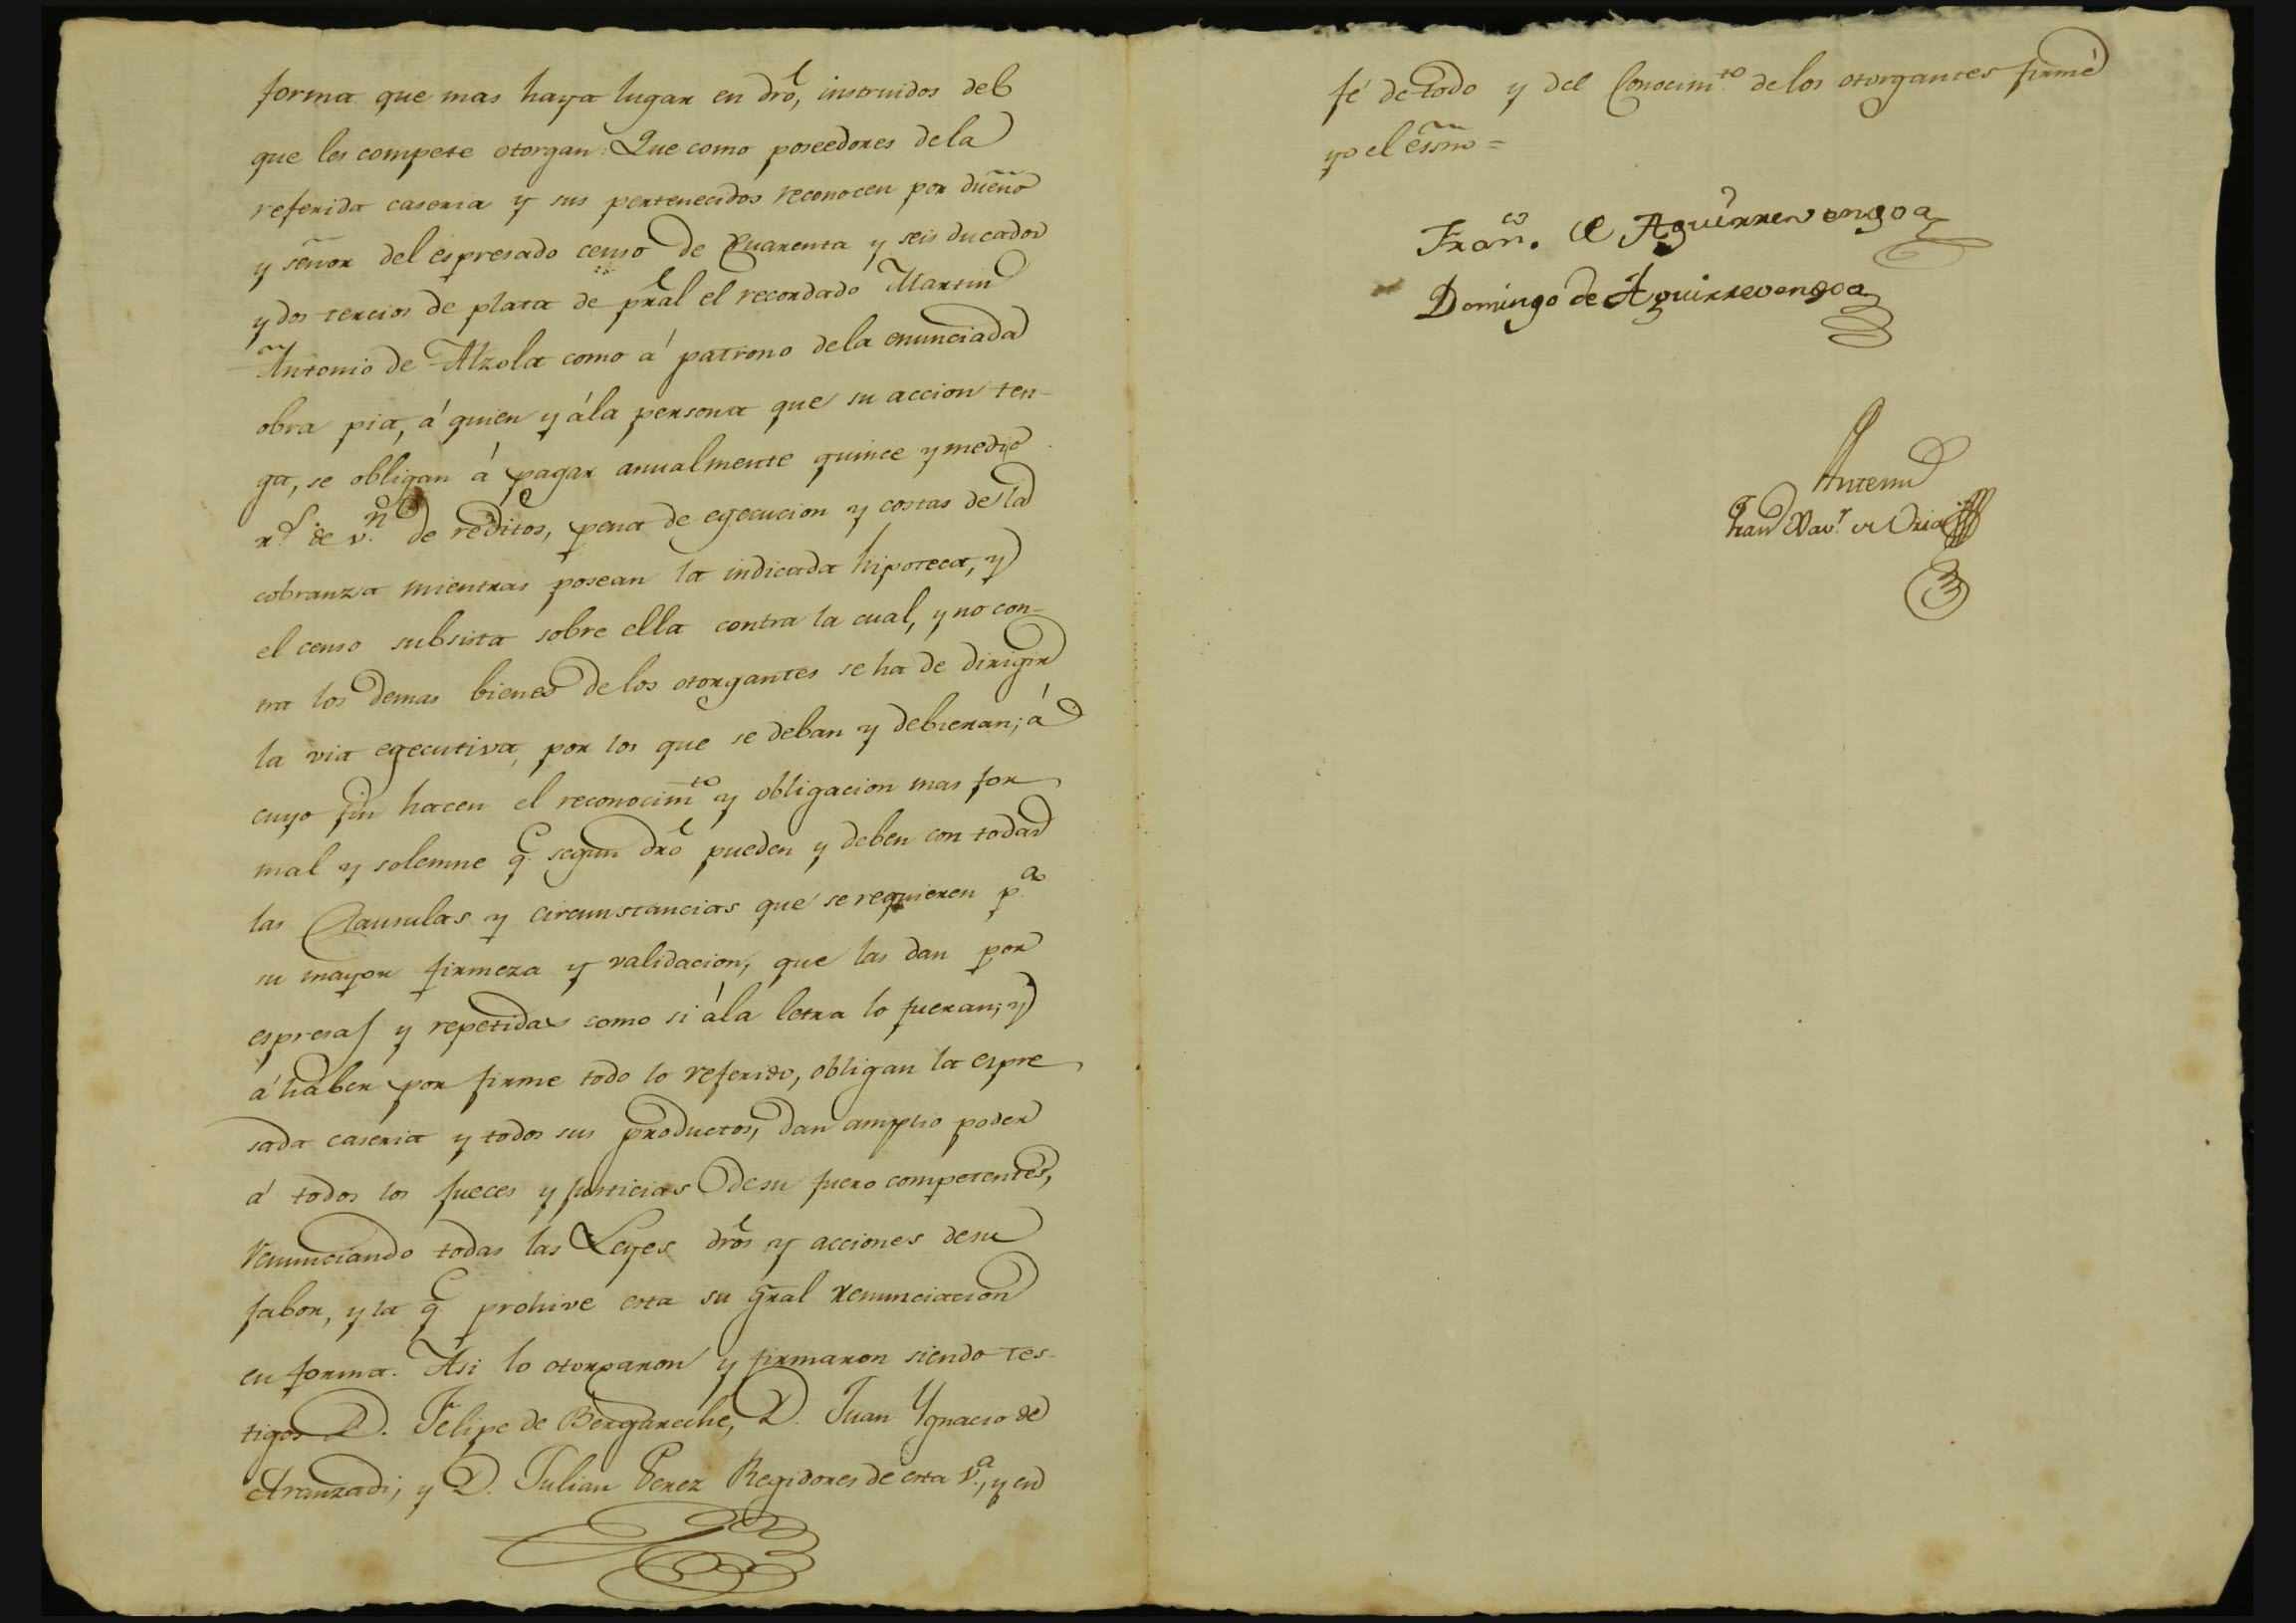 forma que mas haya lugar en dro, instruidos del
que les compete otorgan: Que como poseedores dela
referida caseria y sus pertenecidos reconocen por dueño
y señor del espresado censo de Quarenta y seis ducados
y dos tercios de plata de pral el recordado Martin
Antonio de Alzola como á patrono dela enunciada
obra pia, á quien y ála persona que su accion ten-
ga, se obligan á pagar anualmente quince y medio
rs. de vn. de reditos, pena de egecucion y costas de la
cobranza mientras posean la indicada hipoteca, y
el censo subsista sobre ella contra la cual, y no con-
tra los demas bienes de los otorgantes se ha de dirigir
la via egecutiva, por los que se deban y debieran; á
cuyo fin hacen el reconocimto. y obligacion mas for
mal y solemne q. segun dro pueden y deben con todas
las Clausulas y circunstancias que se requieren pa.
su mayor firmeza y validacion, que las dan por
espresas y repetidas como si ála letra lo fueran; y
á haber por firme todo lo referido, obligan la espre
sada caseria y todos sus productos, dan amplio poder
á todos los jueces y justicias de su fuero competentes,
renunciando todas las Leyes dros y acciones de su
fabor, y la q. prohive esta su gral renunciacion
en forma. Asi lo otorgaron y firmaron siendo tes-
tigos D. Felipe de Bergareche, D. Juan Ygnacio de
Aranzadi, y D. Julian Perez Regidores de esta Va., y en
fé de todo y del Conocimto. de los otorgantes firmé
yo el essno =
Franco. de Aguirrevengoa
Domingo de Aguirrevengoa
Antemi
Xavr. de Oria